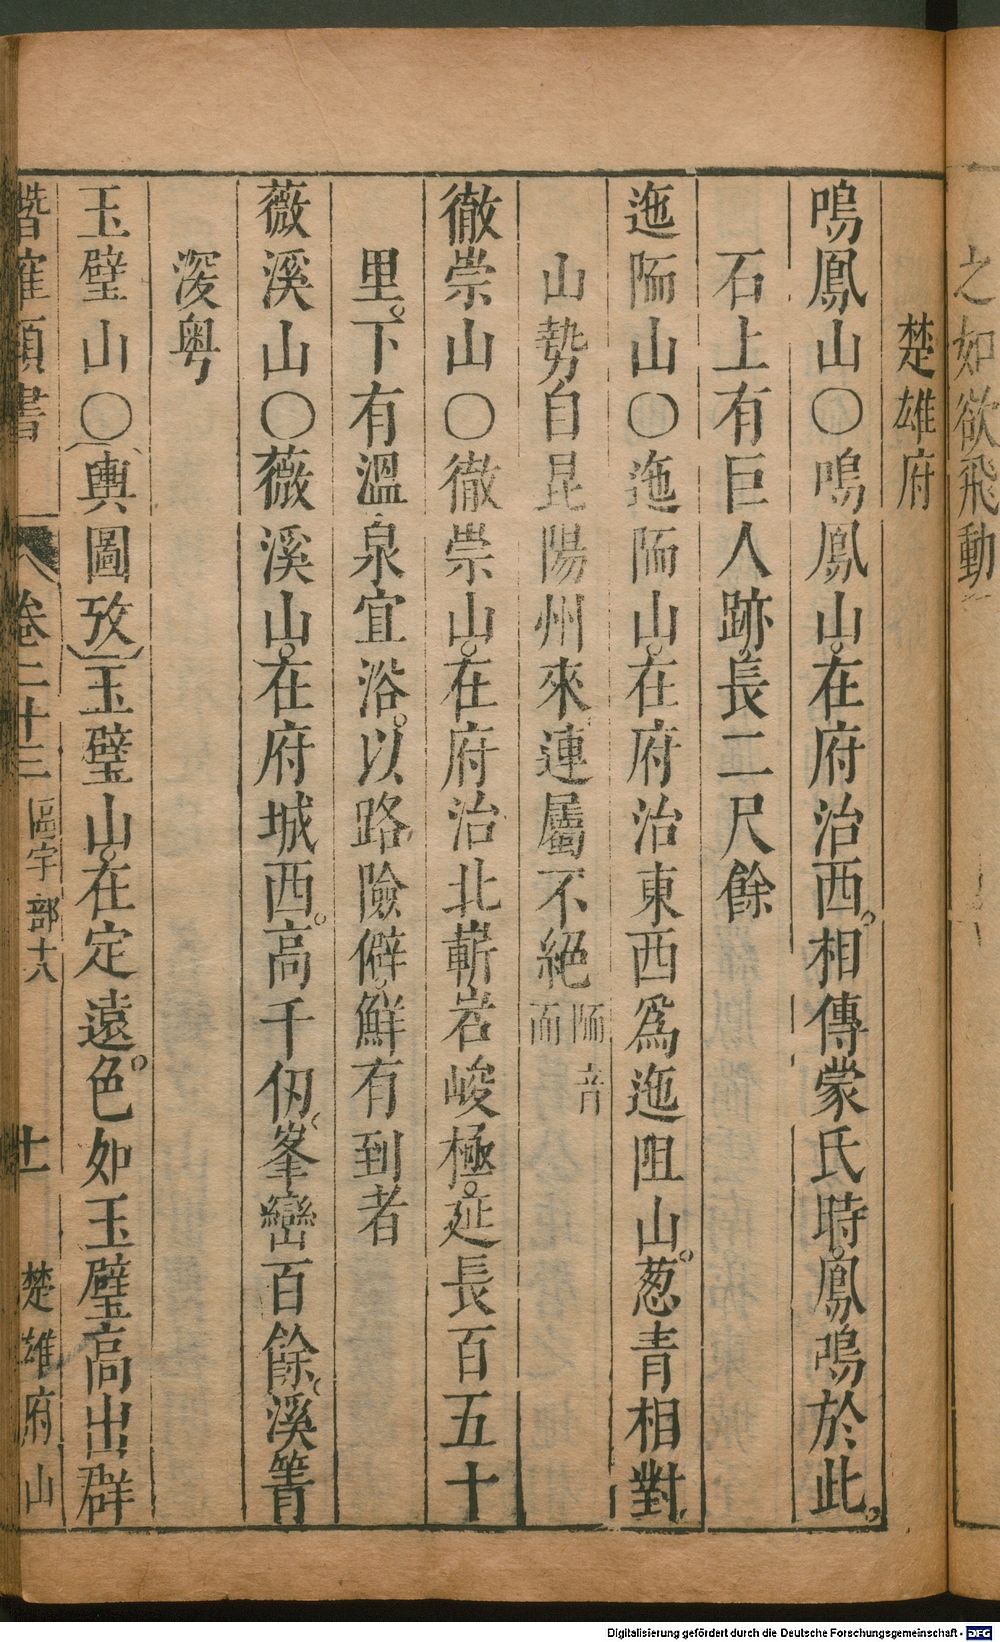 之如欲飛動
楚雄府
鳴鳳山〇鳴鳳山。在府治西。相傳蒙氏時。鳳鳴於此。
石上有巨人跡。長二尺餘
迤陑山〇迤陑山。在府治東西爲迤阻山。葱青相對
山勢自昆陽州來連屬不絕陑音而
徹崇山〇徹崇山。在府治北嶄岩峻極。延長百五十
里。下有溫泉宜浴。以路險僻。鮮有到者
薇溪山〇薇溪山。在府城西。高千仞峯巒百餘溪箐
深粤
玉璧山〇輿圖攷玉璧山。在定遠。色如玉璧高出群
潛確類書 卷二十三 區宇部十八 十一 楚雄府山
Digitalisierung gefördert durch die Deutsche Forschungsgemeinschaft - DFG